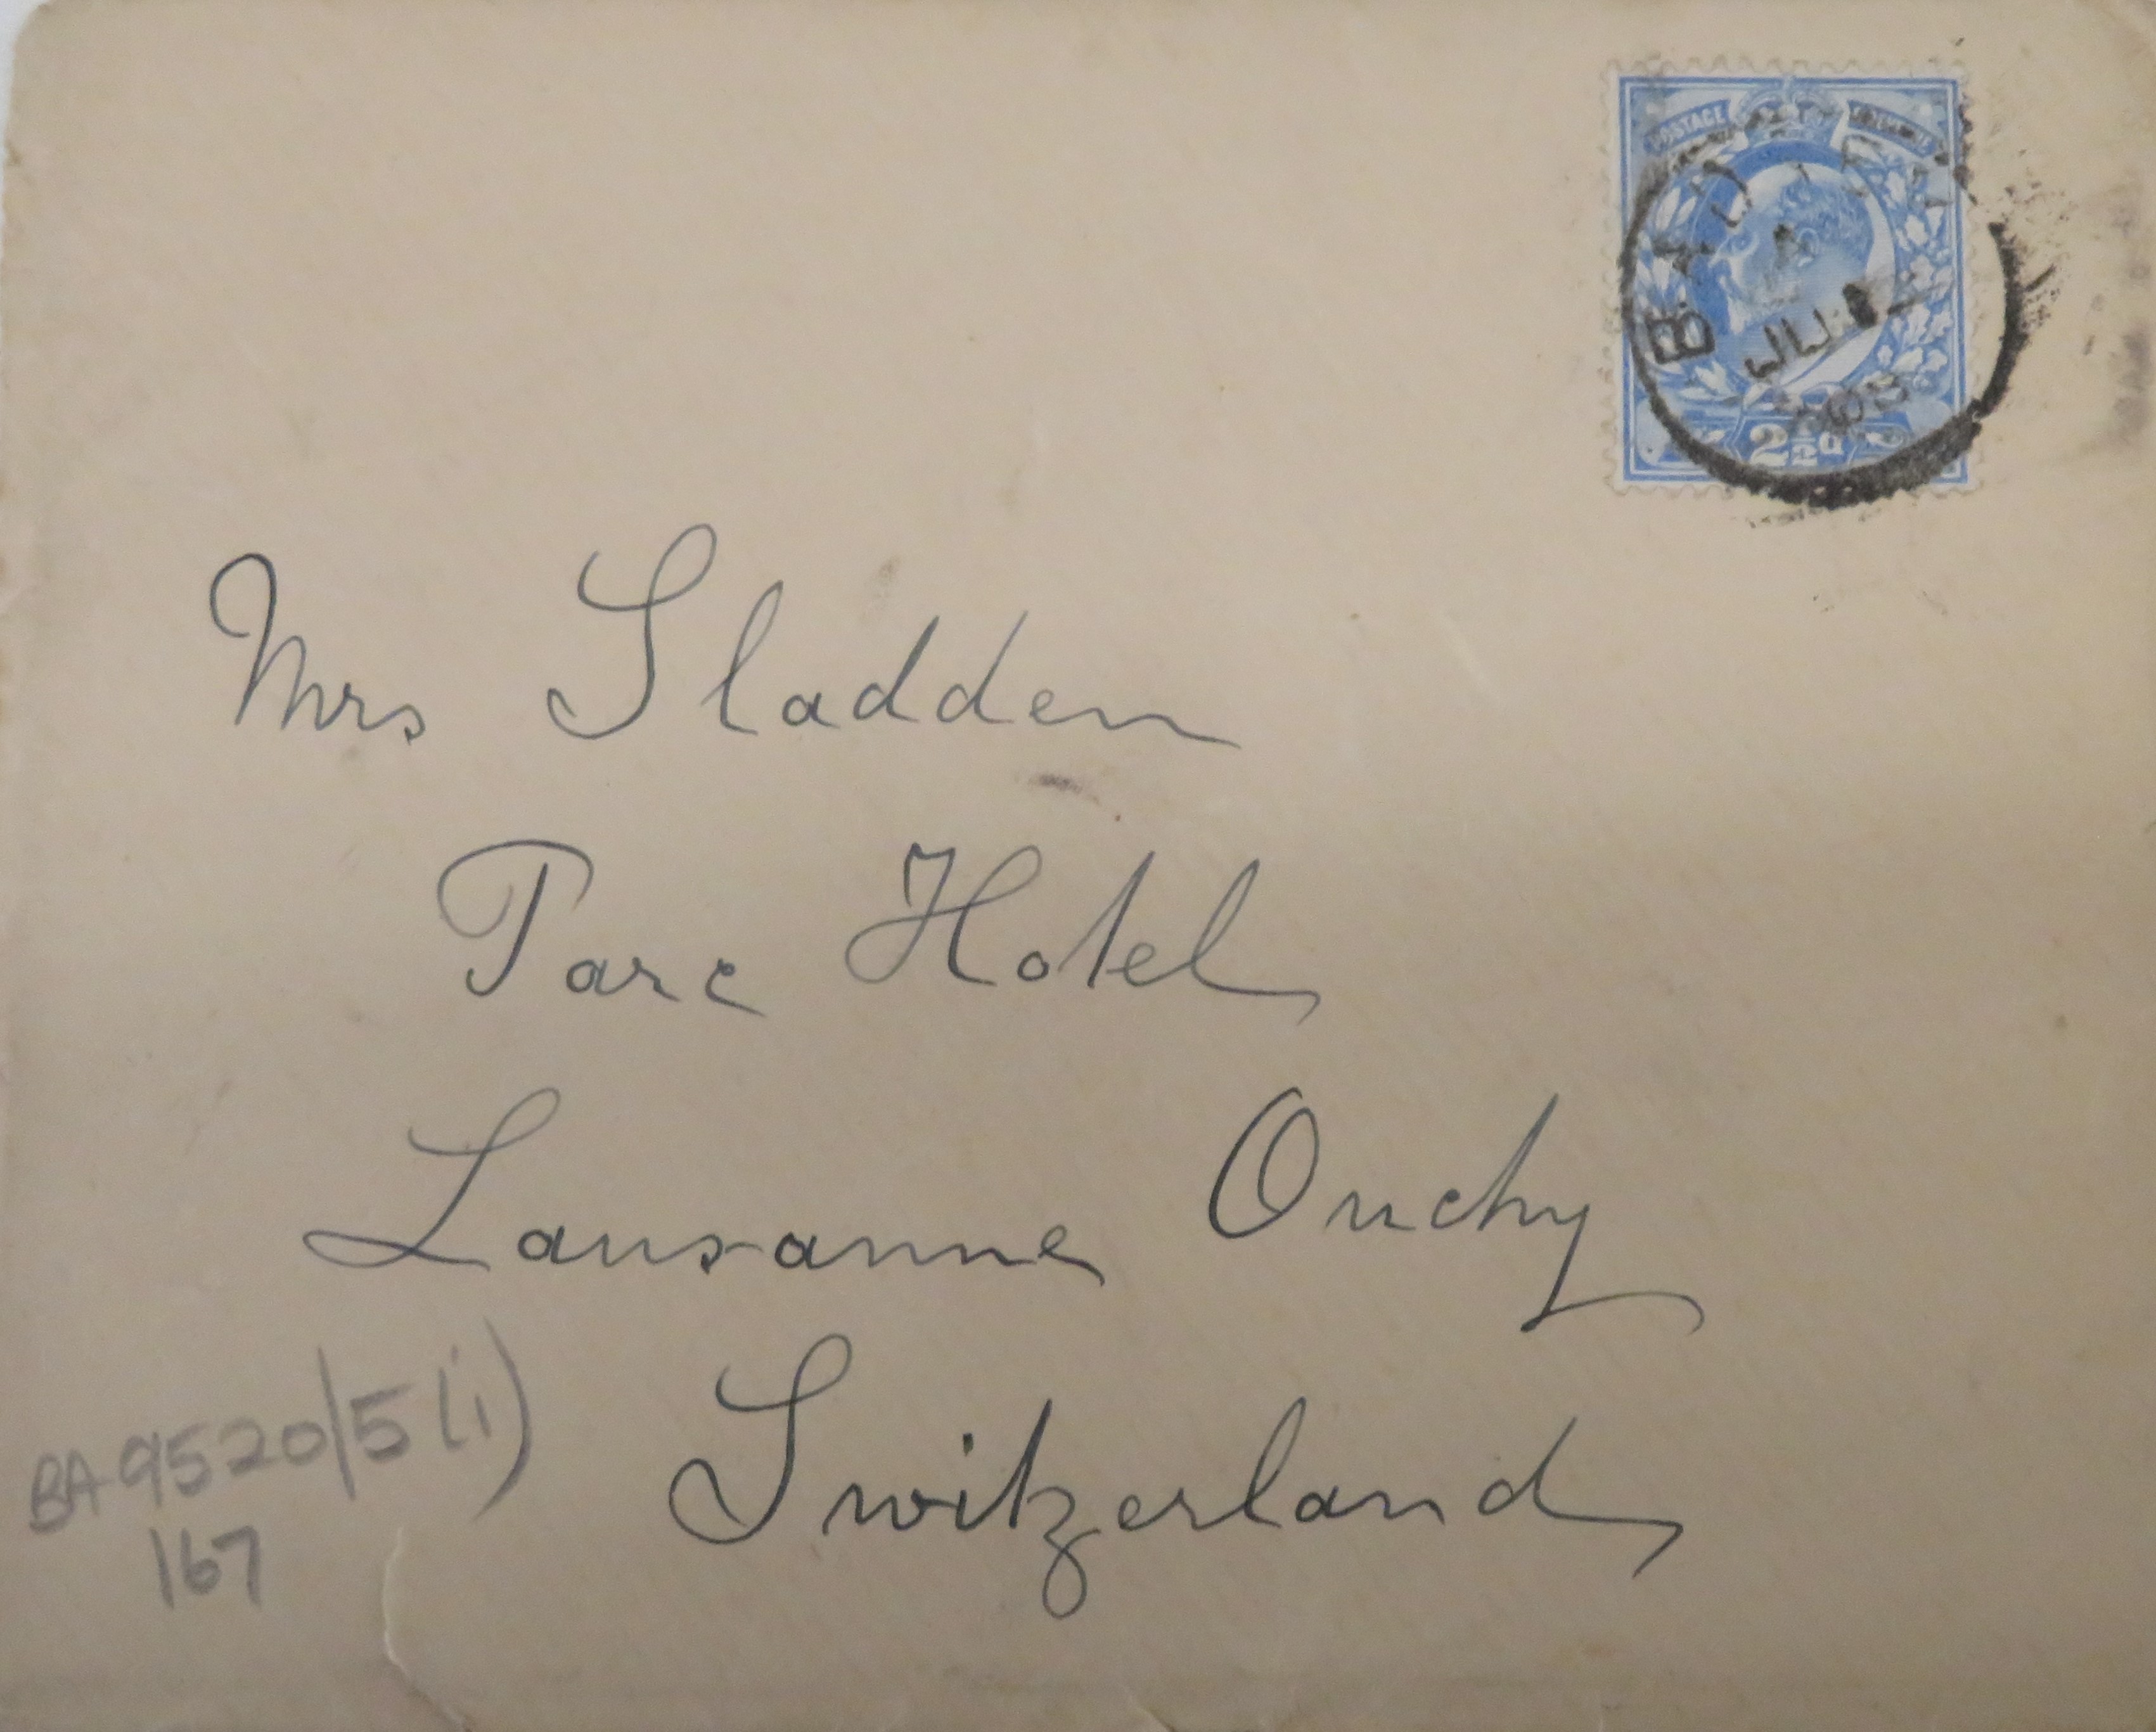 POSTAGE
JU
2½d
Mrs Sladden
Parc Hotel
Lausanne Ouchy
Switzerland
BA 9520/5 (i)
167